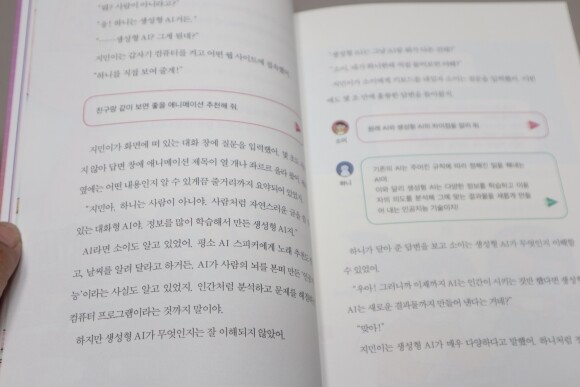 "뭐? 사람이 아니라고?"
"응! 하나는 생성형 AI거든."
"――생성형 AI? 그게 뭔데?"
지민이는 갑자기 컴퓨터를 켜고 어떤 웹 사이트에
"하나를 직접 보여 줄게!"
친구랑 같이 보면 좋을 애니메이션 추천해 줘.
지민이가 화면에 떠 있는 대화 창에 질문을 입력했어. 몇 초도
지 않아 답변 창에 애니메이션 제목이 열 개나 좌르르 올라
옆에는 어떤 내용인지 알 수 있게끔 줄거리까지 요약되어 있었지.
"지민아, 하나는 사람이 아니야. 사람처럼 자연스러운 글을
있는 대화형 AI야. 정보를 많이 학습해서 만든 생성형 AI지."
AI라면 소이도 알고 있었어. 평소 AI 스피커에게 노래
고, 날씨를 알려 달라고 하거든. AI가 사람의 뇌를 본떠 만든
능'이라는 사실도 알고 있었지. 인간처럼 분석하고 문제를
컴퓨터 프로그램이라는 것까지 말이야.
하지만 생성형 AI가 무엇인지는 잘 이해되지 않았어.
"생성형 AI는 그냥 AI랑 뭐가 다른 건데?"
소이
원래 AI와 생성형 AI의 차이점을 알려 줘.
하나
기존의 AI는 주어진 규칙에 따라 정해진 일을 해내는
AI야.
이와 달리 생성형 AI는 다양한 정보를 학습하고 이용
자의 의도를 분석해, 그에 맞는 결과물을 새롭게 만들
어 내는 인공지능 기술이지!
하나가 달아 준 답변을 보고 소이는 생성형 AI가 무엇인지 이해할
수 있었어.
"우아! 그러니까 이제까지 AI는 인간이 시키는 것만 했다면 생성형
AI는 새로운 결과물까지 만들어 낸다는 거네?"
"맞아!"
지민이는 생성형 AI가 매우 다양하다고 말했어. 하나처럼